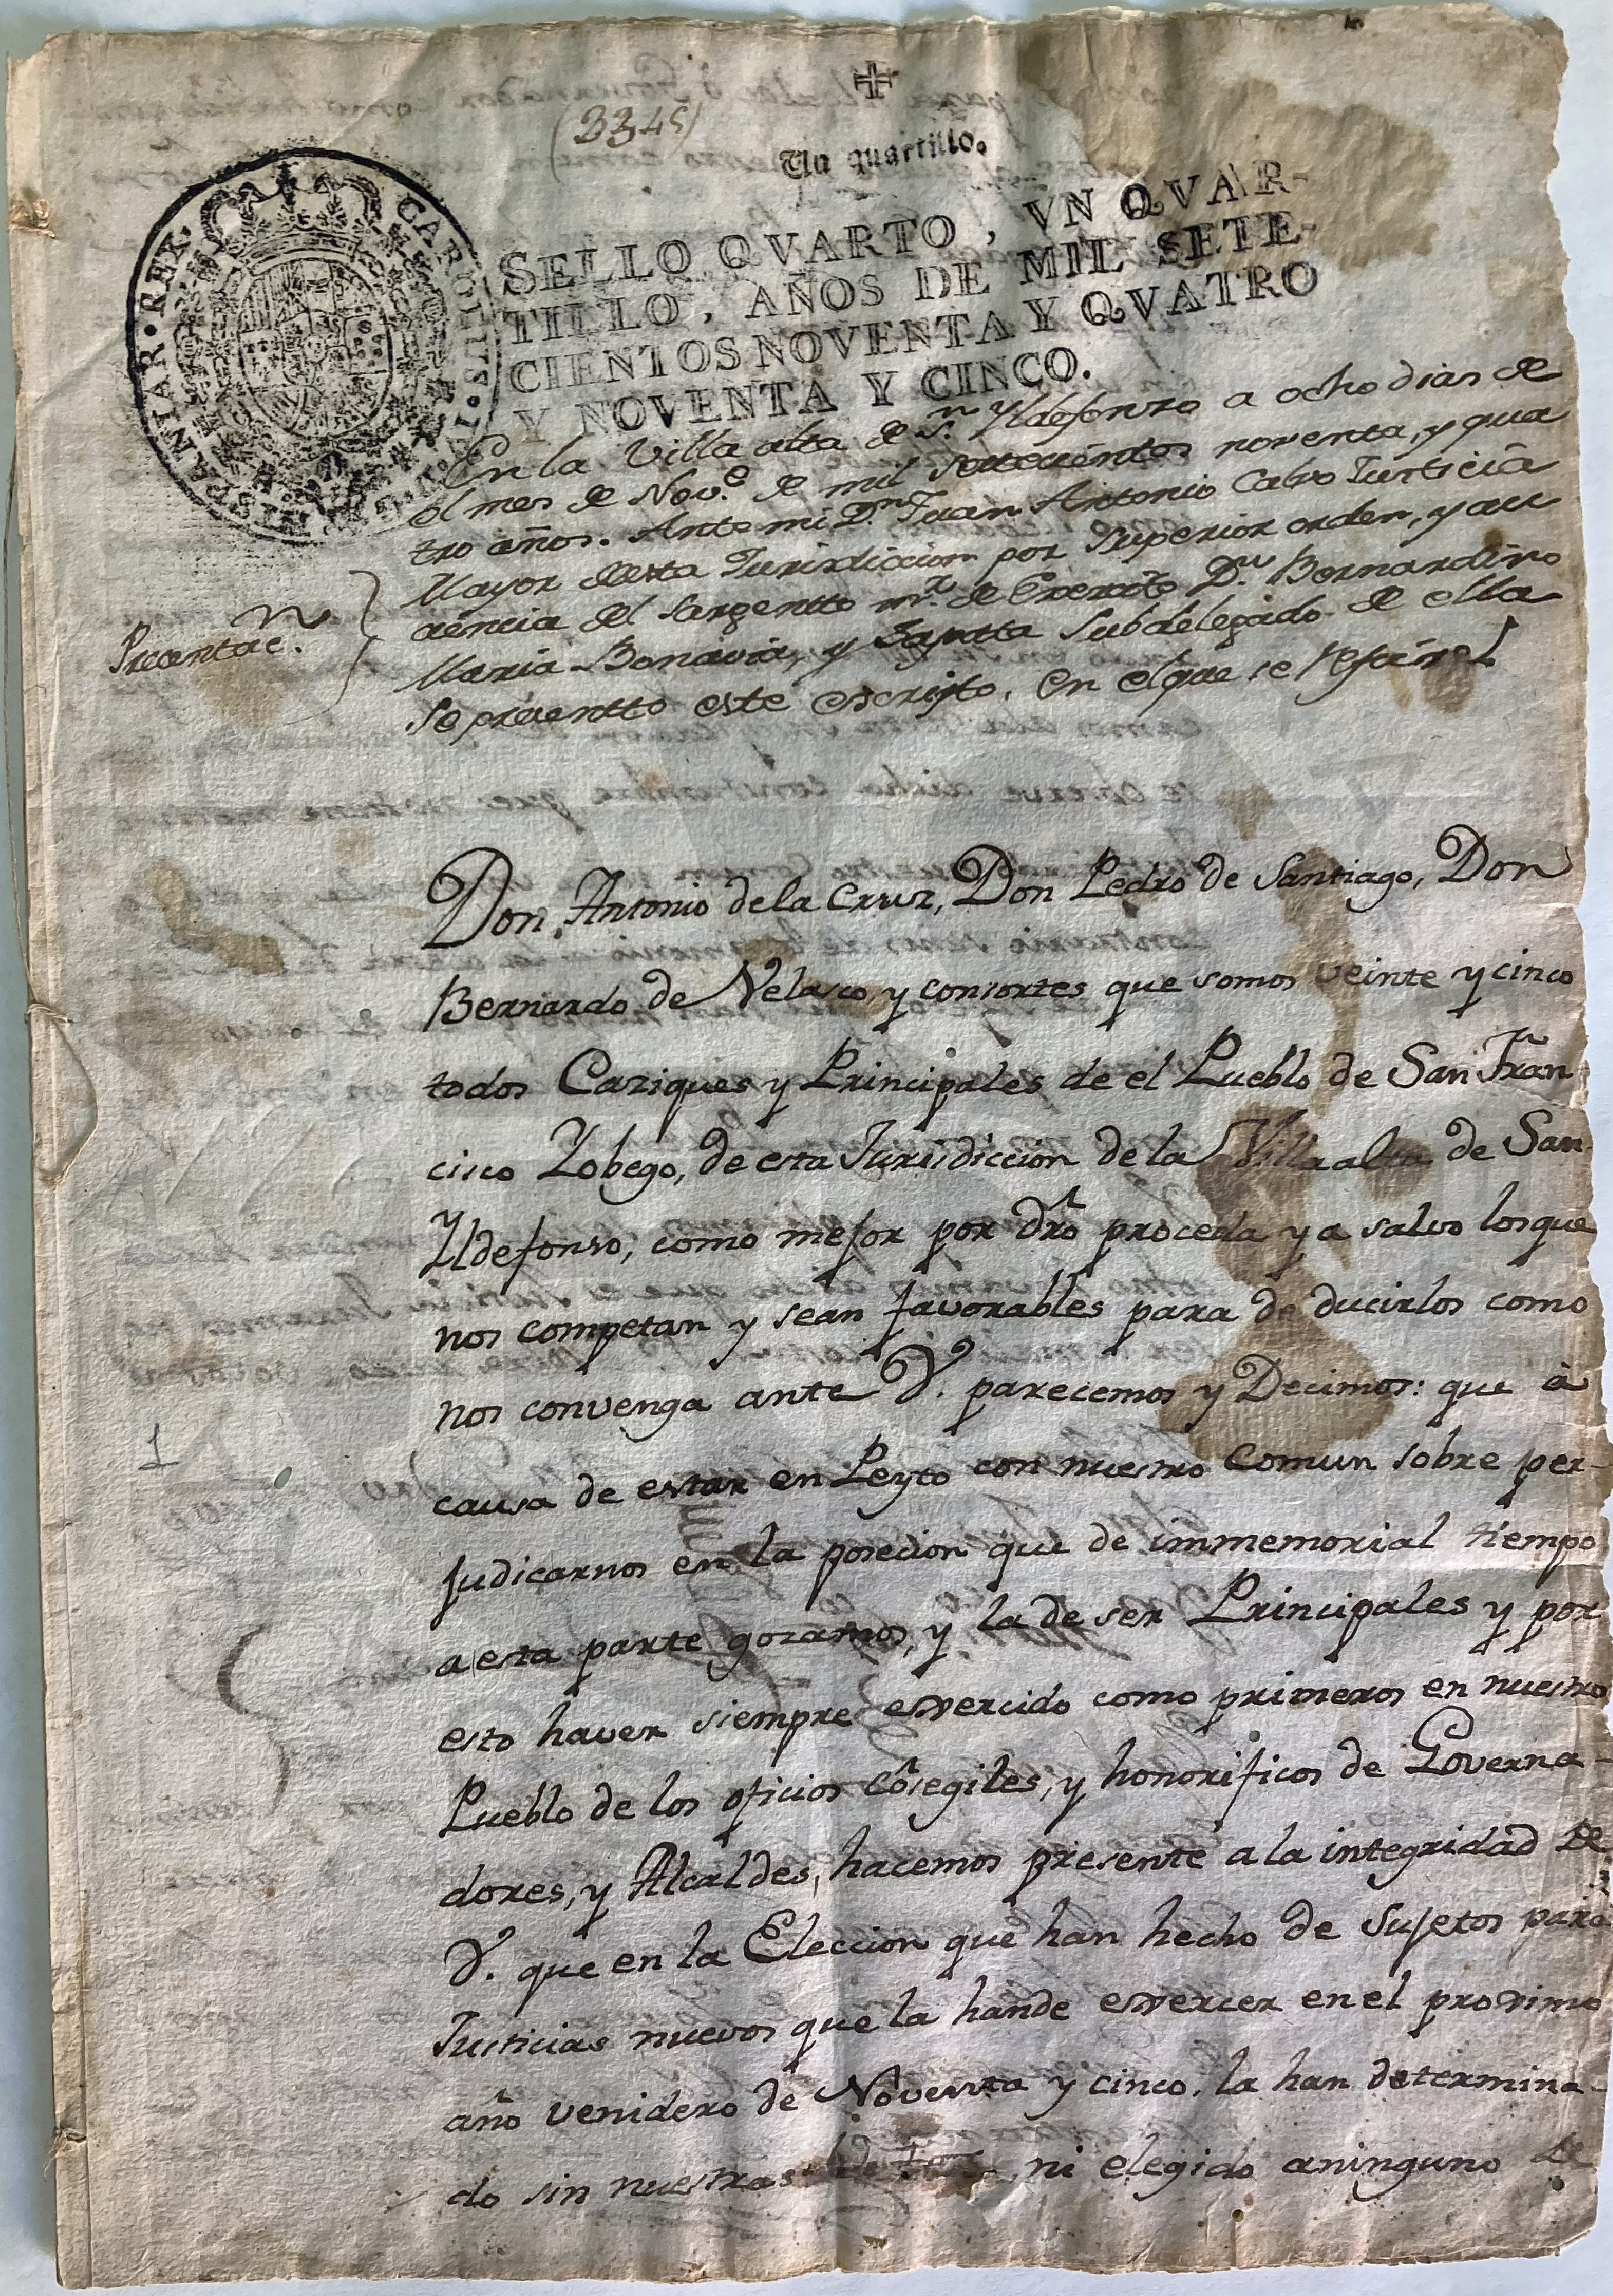 (3345)
Un quartillo.
SELLO QVARTO, VN QVAR-
TILLO, AÑOS DE MIL SETE-
CIENTOS NOVENTA Y QVATRO
Y NOVENTA Y CINCO.
En la Villa alta de Sn. Yldefonzo a ocho dias de
el mes de Nove. de mil setecientos noventa, y qua
tro años. Ante mi Dn. Juan Antonio Calvo Justicia
Mayor desta Jurisdiccion por Superior orden, y au
cencia del Sargentto mr. de Exercito Dn. Bernardino
Maria Bonavia, y Zapatta Subdelegado de ella
Se presentto este escripto, en el que se
Precentac.n
Don Antonio dela Cruz, Don Pedro de Santiago, Don
Bernardo de Velasco y consortes que somos veinte y cinco
todos Caziques y Principales de el Pueblo de San Fran
cisco Yobego, de esta Jurisdiccion dela Villa alta de San
Yldefonso, como mejor por dro proceda y a salvo los que
nos competan y sean favorables para de ducirlos como
nos convenga ante V. parecemos y Decimos: que à
causa de estar en Leyto con nuestro Comun sobre per-
judicarnos en la posecion que de immemorial tiempo
a esta parte gozamos, y la de ser Principales y por
esto haver siempre exercido como primeros en nuestro
Pueblo de los oficios Cõsegiles, y honorificos de Governa-
dores, y Alcaldes, hacemos presente a la integridad de
V. que en la Eleccion que han hecho de Sujetos para
Justicias nuevos que la hande exercer en el proximo
año venidero de Noventa y cinco, la han determina-
do sin nuestras ni elegido aninguno de
1